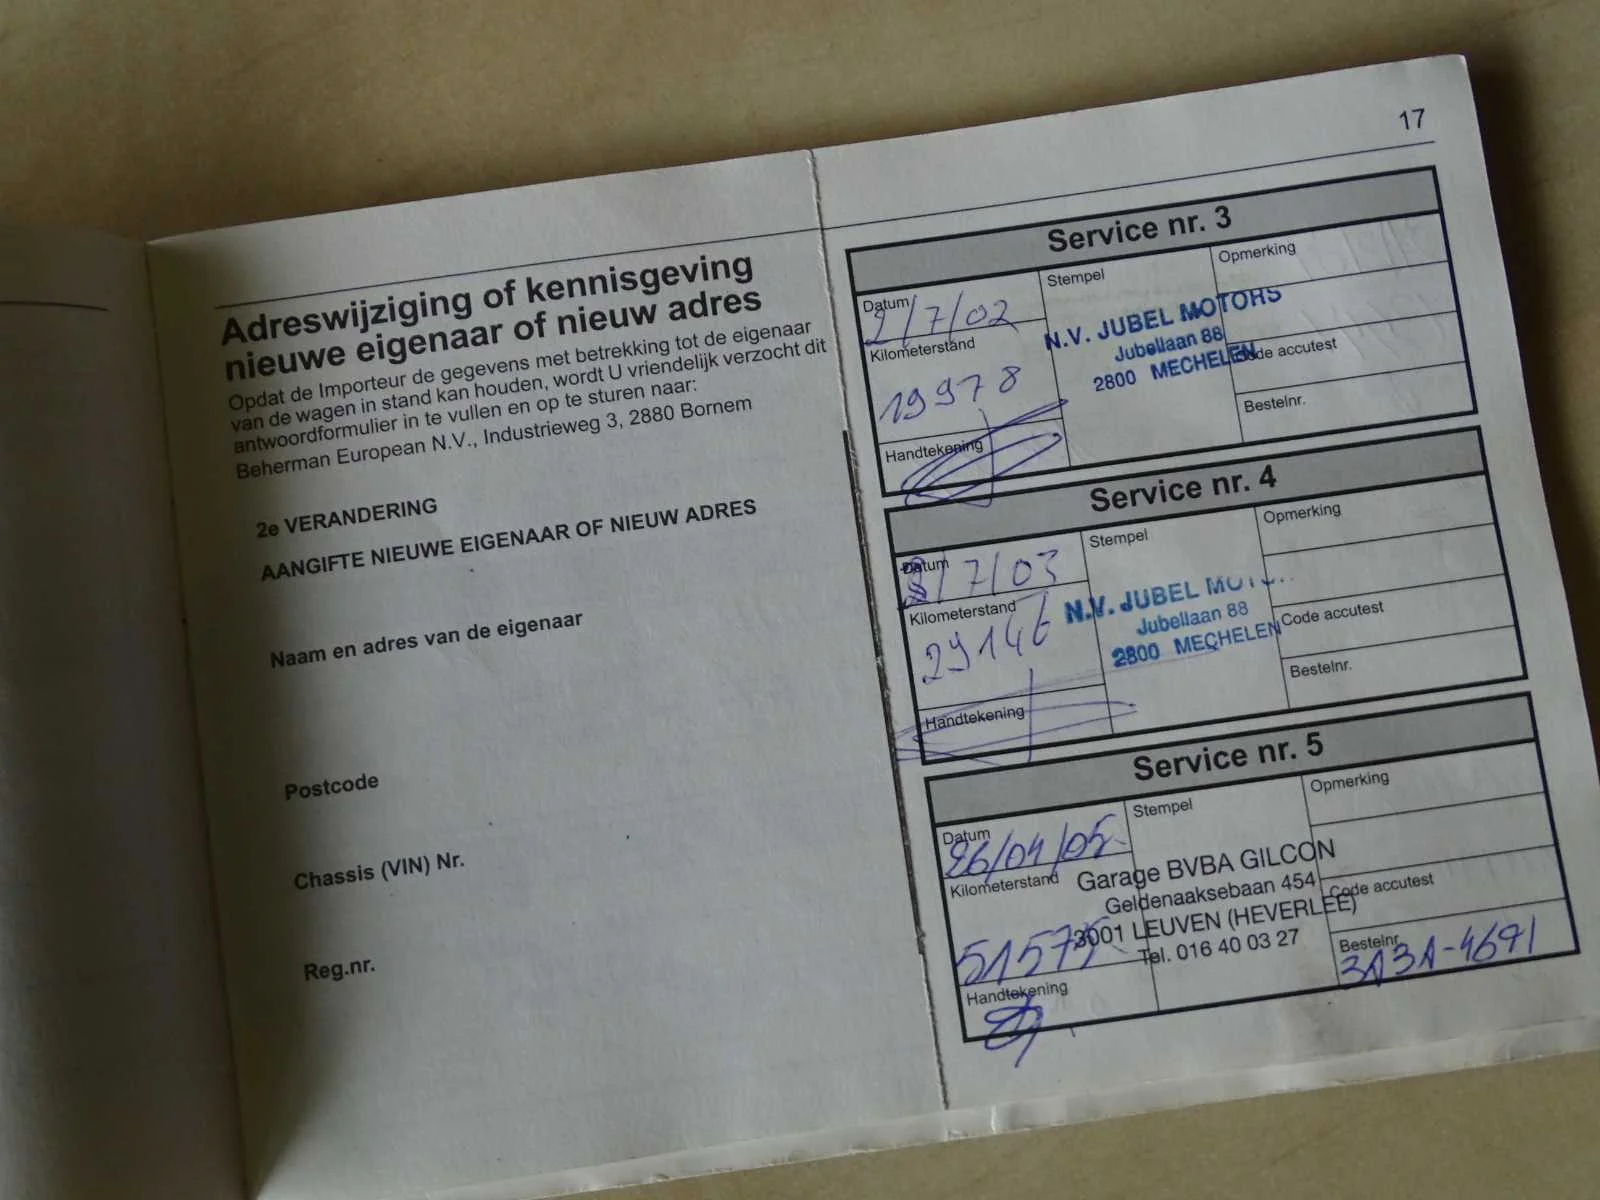 Adreswijziging of kennisgeving
nieuwe eigenaar of nieuw adres
Opdat de Importeur de gegevens met betrekking tot de eigenaar
van de wagen in stand kan houden, wordt U vriendelijk verzocht dit
antwoordformulier in te vullen en op te sturen naar:
Beherman European N.V., Industrieweg 3, 2880 Bornem
2e VERANDERING
AANGIFTE NIEUWE EIGENAAR OF NIEUW ADRES
Naam en adres van de eigenaar
Postcode
Chassis (VIN) Nr.
Reg.nr.
17
Service nr. 3
Datum
2/7/02
Kilometerstand
19978
Handtekening
Stempel
N.V. JUBEL MOTORS
Jubellaan 88
2800 MECHELEN
Opmerking
Code accutest
Bestelnr.
Service nr. 4
Datum
/7/03
Kilometerstand
29146
Handtekening
Stempel
N.V. JUBEL
Jubellaan 88
2800 MECHELEN
Opmerking
Code accutest
Bestelnr.
Service nr. 5
Datum
26/04/05
Kilometerstand
51575
Handtekening
Stempel
Garage BVBA GILCON
Geldenaaksebaan 454
3001 LEUVEN (HEVERLEE)
Tel. 016 40 03 27
Opmerking
Code accutest
Bestelnr.
3A3A-4691